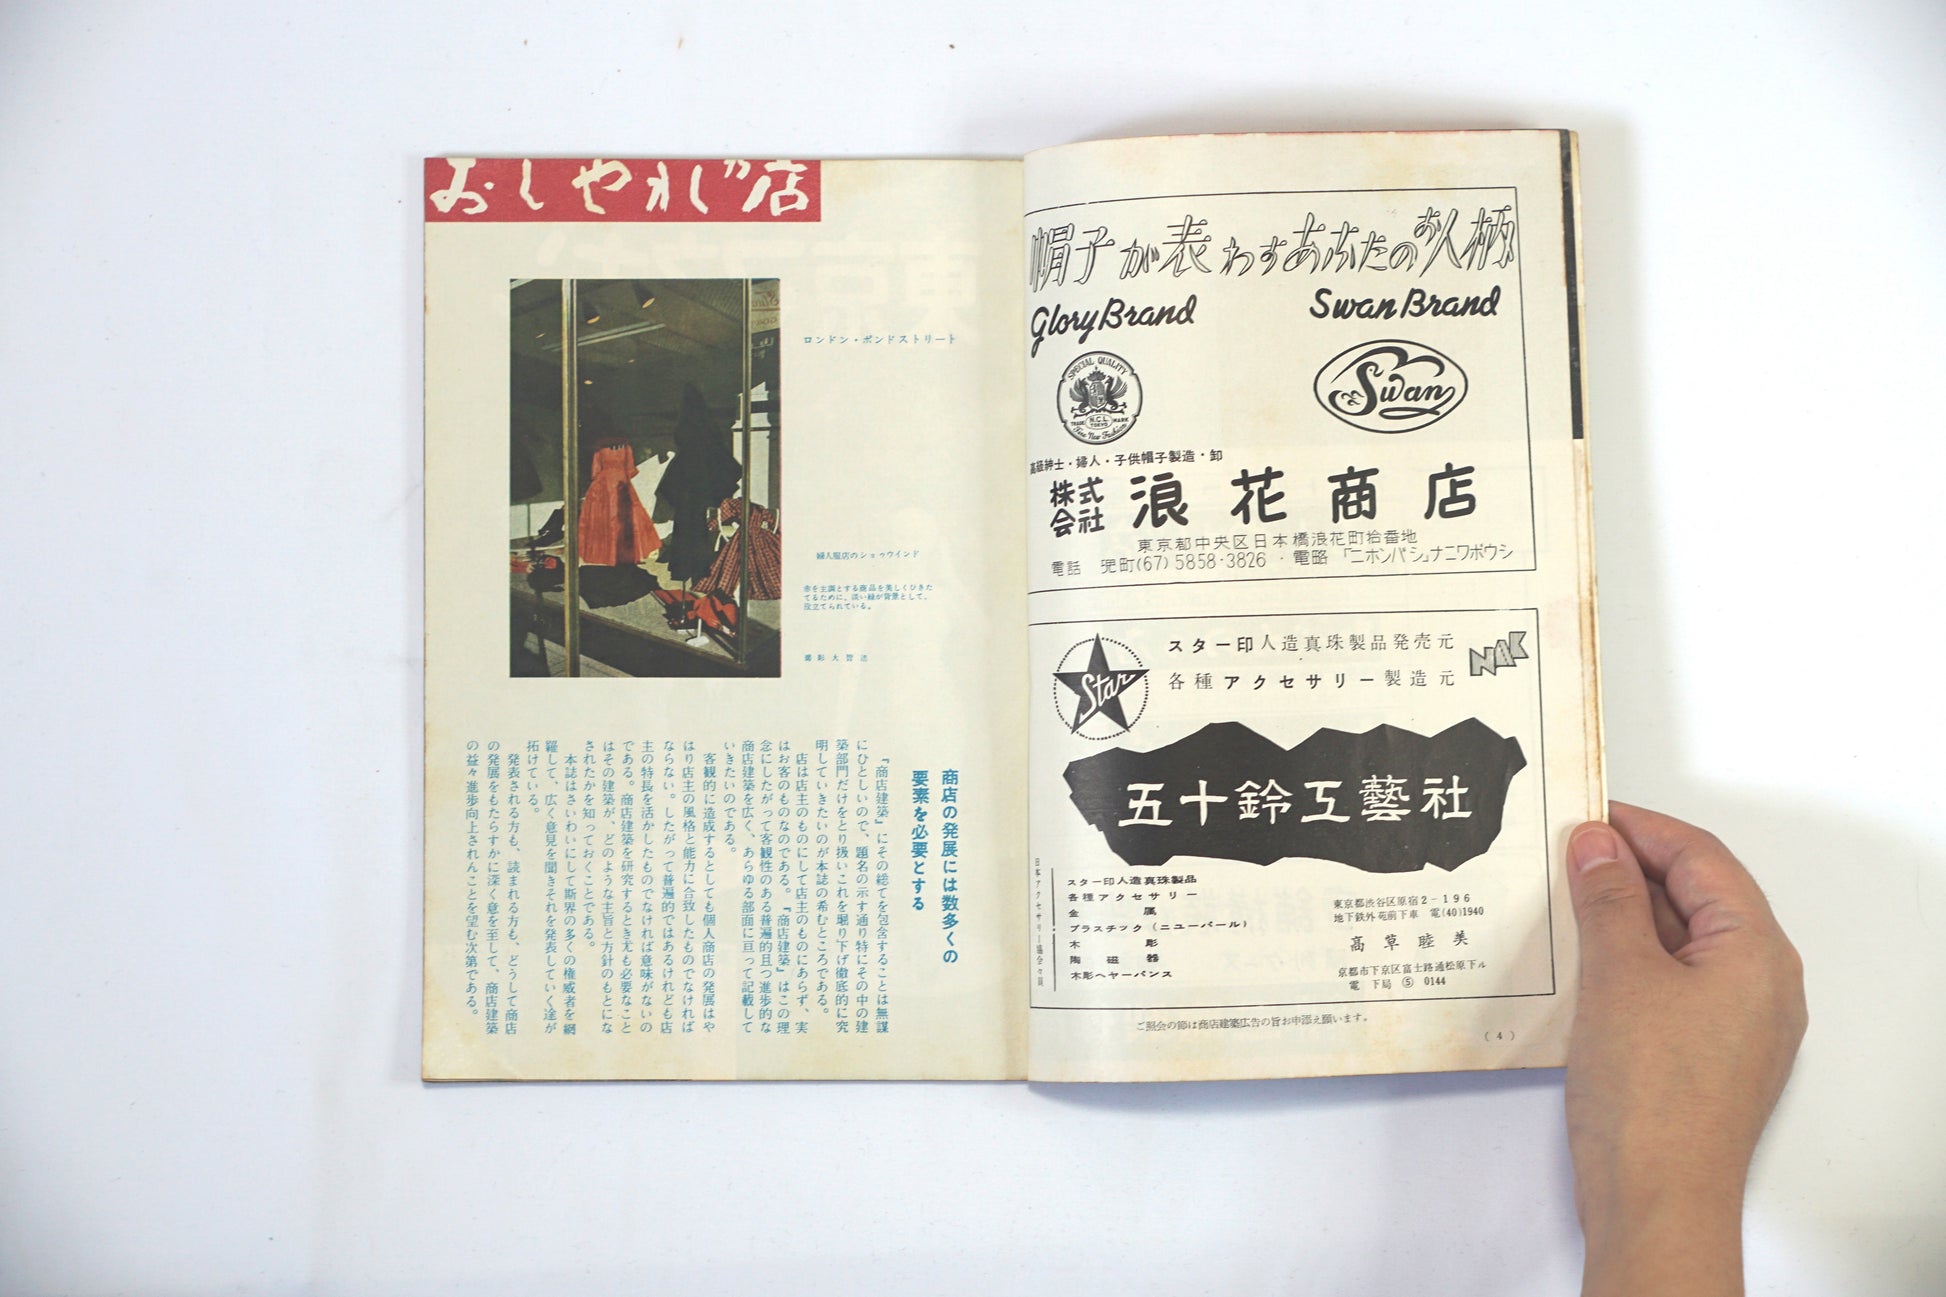 おしやれな店
ロンドン・ボンドストリート
婦人服店のショウウインド
赤を主調とする商品を美しくひきた
てるために、淡い緑が背景として、
役立てられている。
商店の発展には数多くの
要素を必要とする
『商店建築』にその総てを包含することは無謀
にひとしいので、題名の示す通り特にその中の建
築部門だけをとり扱いこれを堀り下げ徹底的に究
明していきたいのが本誌の希むところである。
店は店主のものにして店主のものにあらず、実
はお客のものなのである。『商店建築』はこの理
念にしたがって客観性のある普遍的且つ進歩的な
商店建築を広く、あらゆる部面に亘って記載して
いきたいのである。
客観的に造成するとしても個人商店の発展はや
はり店主の風格と能力に合致したものでなければ
ならない。したがって普遍的ではあるけれども店
主の特長を活かしたものでなければ意味がないの
である。商店建築を研究するとき尤も必要なこと
はその建築が、どのような主旨と方針のもとにな
されたかを知っておくことである。
本誌はさいわいにして斯界の多くの権威者を網
羅して、広く意見を聞きそれを発表していく途が
拓けている。
発表される方も、読まれる方も、どうして商店
の発展をもたらすかに深く意を至して、商店建築
の益々進歩向上されんことを望む次第である。
帽子が表わすあなたのお人柄
Glory Brand
Swan Brand
SPECIAL QUALITY
N.C.L
TRADE MARK
TOKYO
Fine New Fashion
Swan
高級紳士・婦人・子供帽子製造・卸
株式会社 浪花商店
東京都中央区日本橋浪花町拾番地
電話 兜町(67)5858・3826・電略「ニホンバシ」ナニワボウシ
Star
スター印人造真珠製品発売元
各種アクセサリー製造元
NAK
五十鈴工藝社
日本アクセサリー協会々員
スター印人造真珠製品
各種アクセサリー
金属
プラスチック(ニューパール)
木彫
陶磁器
木彫ヘヤーバンス
東京都渋谷区原宿2-196
地下鉄外苑前下車 電(40)1940
高草睦美
京都市下京区富士路通松原下ル
電 下局 ⑤ 0144
ご照会の節は商店建築広告の旨お申添え願います。
(4)